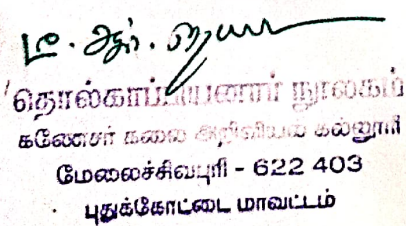 தொல்காப்பியனார் நூலகம்
கணேசர் கலை அறிவியல் கல்லூரி
மேலைச்சிவபுரி - 622 403
புதுக்கோட்டை மாவட்டம்